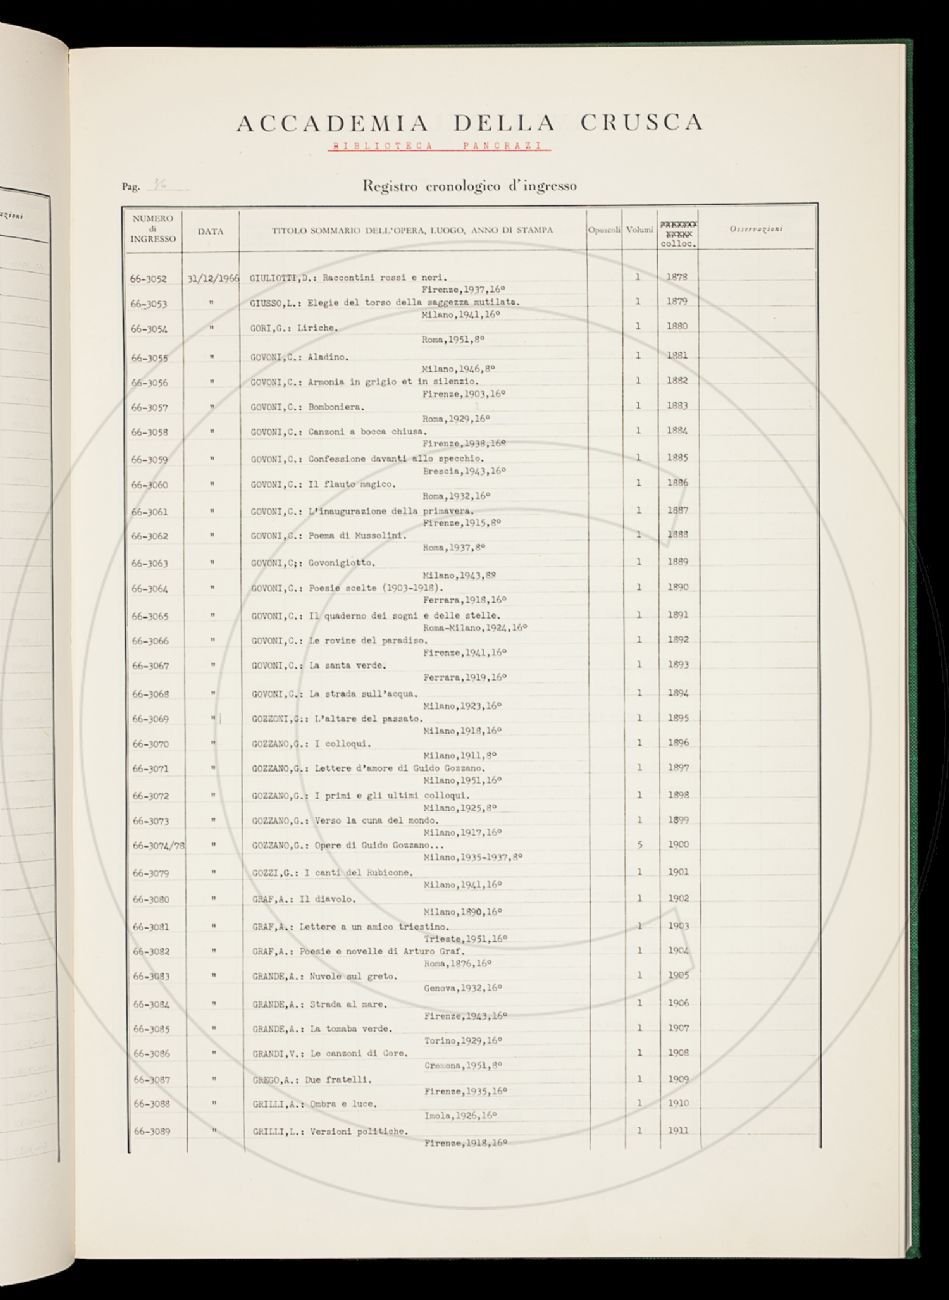 azioni
ACCADEMIA DELLA CRUSCA
BIBLIOTECA PANCRAZI
Pag. 56
Registro cronologico d'ingresso
NUMERO di INGRESSO DATA TITOLO SOMMARIO DELL'OPERA, LUOGO, ANNO DI STAMPA Opuscoli Volumi colloc. Osservazioni
66-3052 31/12/1966 GIULIOTTI,D.: Raccontini rossi e neri. 1 1878
Firenze,1937,16º
66-3053 " GIUSSO,L.: Elegie del torso della saggezza mutilata. 1 1879
Milano,1941,16º
66-3054 " GORI,G.: Liriche. 1 1880
Roma,1951,8º
66-3055 " GOVONI,C.: Aladino. 1 1881
Milano,1946,8º
66-3056 " GOVONI,C.: Armonia in grigio et in silenzio. 1 1882
Firenze,1903,16º
66-3057 " GOVONI,C.: Bomboniera. 1 1883
Roma,1929,16º
66-3058 " GOVONI,C.: Canzoni a bocca chiusa. 1 1884
Firenze,1938,16º
66-3059 " GOVONI,C.: Confessione davanti allo specchio. 1 1885
Brescia,1943,16º
66-3060 " GOVONI,C.: Il flauto magico. 1 1886
Roma,1932,16º
66-3061 " GOVONI,C.: L'inaugurazione della primavera. 1 1887
Firenze,1915,8º
66-3062 " GOVONI,C.: Poema di Mussolini. 1 1888
Roma,1937,8º
66-3063 " GOVONI,C;: Govonigiotto. 1 1889
Milano,1943,8º
66-3064 " GOVONI,C.: Poesie scelte (1903-1918). 1 1890
Ferrara,1918,16º
66-3065 " GOVONI,C.: Il quaderno dei sogni e delle stelle. 1 1891
Roma-Milano,1924,16º
66-3066 " GOVONI,C.: Le rovine del paradiso. 1 1892
Firenze,1941,16º
66-3067 " GOVONI,C.: La santa verde. 1 1893
Ferrara,1919,16º
66-3068 " GOVONI,C.: La strada sull'acqua. 1 1894
Milano,1923,16º
66-3069 " GOZZONI,G:: L'altare del passato. 1 1895
Milano,1918,16º
66-3070 " GOZZANO,G.: I colloqui. 1 1896
Milano,1911,8º
66-3071 " GOZZANO,G.: Lettere d'amore di Guido Gozzano. 1 1897
Milano,1951,16º
66-3072 " GOZZANO,G.: I primi e gli ultimi colloqui. 1 1898
Milano,1925,8º
66-3073 " GOZZANO,G.: Verso la cuna del mondo. 1 1899
Milano,1917,16º
66-3074/78 " GOZZANO,G.: Opere di Guido Gozzano... 5 1900
Milano,1935-1937,8º
66-3079 " GOZZI,G.: I canti del Rubicone. 1 1901
Milano,1941,16º
66-3080 " GRAF,A.: Il diavolo. 1 1902
Milano,1890,16º
66-3081 " GRAF,A.: Lettere a un amico triestino. 1 1903
Trieste,1951,16º
66-3082 " GRAF,A.: Poesie e novelle di Arturo Graf. 1 1904
Roma,1876,16º
66-3083 " GRANDE,A.: Nuvole sul greto. 1 1905
Genova,1932,16º
66-3084 " GRANDE,A.: Strada al mare. 1 1906
Firenze,1943,16º
66-3085 " GRANDE,A.: La tomaba verde. 1 1907
Torino,1929,16º
66-3086 " GRANDI,V.: Le canzoni di Core. 1 1908
Cremona,1951,8º
66-3087 " GREGO,A.: Due fratelli. 1 1909
Firenze,1935,16º
66-3088 " GRILLI,A.: Ombra e luce. 1 1910
Imola,1926,16º
66-3089 " GRILLI,L.: Versioni politiche. 1 1911
Firenze,1918,16º